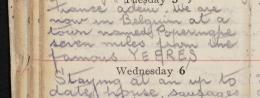 Tuesday 5
France adieu. We are
now in Belguim at a
town named Poperinape
seven miles from the
famous YEPRES
Wednesday 6
Staying at an up to
date house, sausages